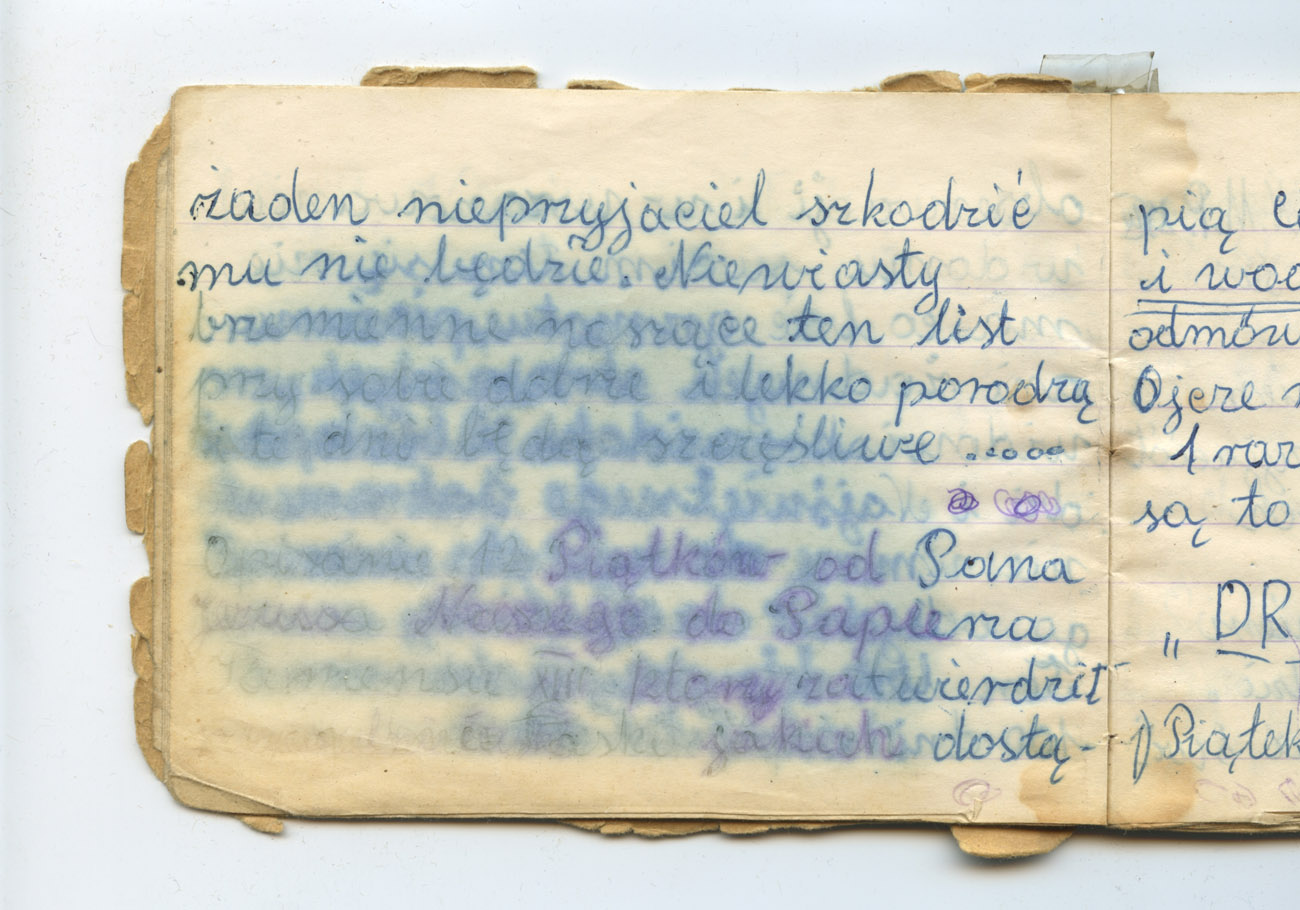 żaden nieprzyjaciel szkodzić
mu nie będzie. Niewiasty
brzemienne noszące ten list
przy sobie dobrze i lekko porodzą
i te dni będą szczęśliwe .....
Opisanie 12 Piątków od Pana
Jezusa Naszego do Papierza
XIII który zatwierdził
jakich dostą-
pią
i
Ojcze
1 raz
są to
„ DR
1) Piątek